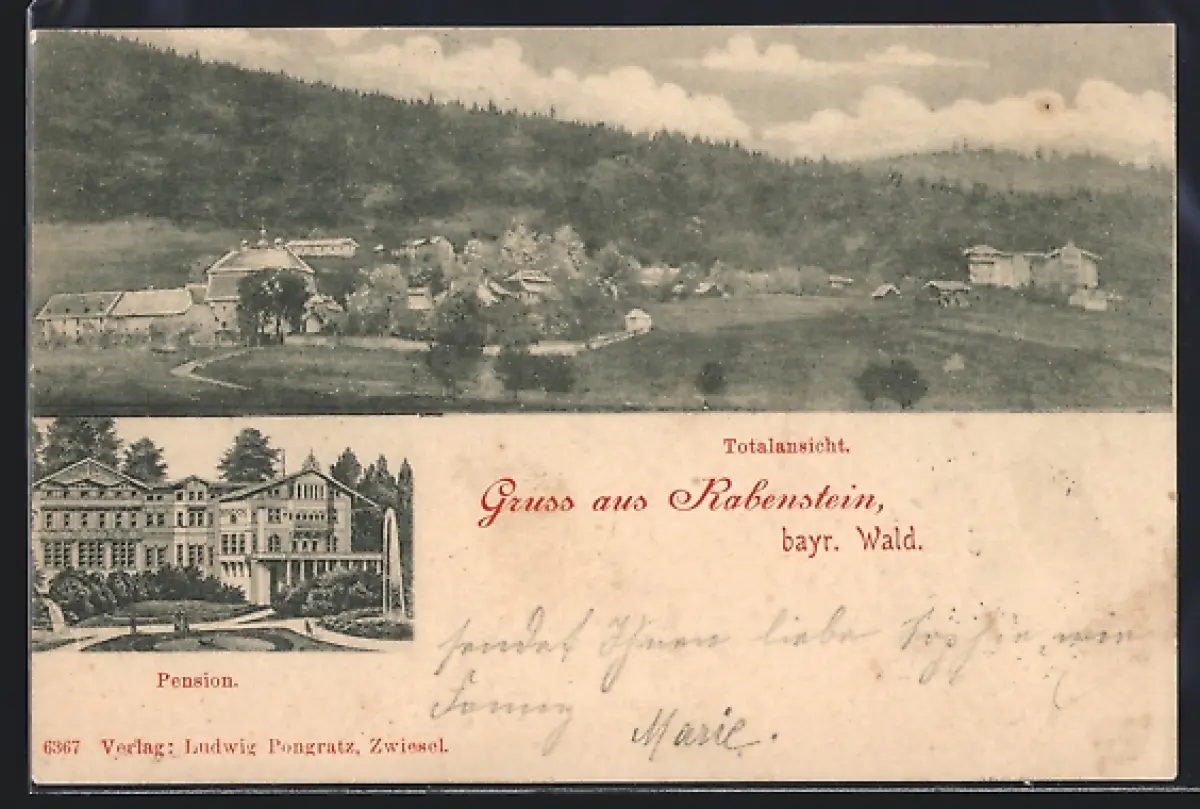 Totalansicht.
Gruss aus Rabenstein,
bayr. Wald.
sendet Ihnen liebe Sophie, wie
Fanny
Marie.
Pension.
6367 Verlag: Ludwig Pongratz, Zwiesel.